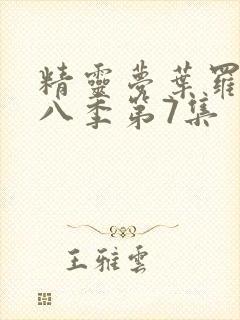 精靈夢葉羅
八季第7集
王雅雲